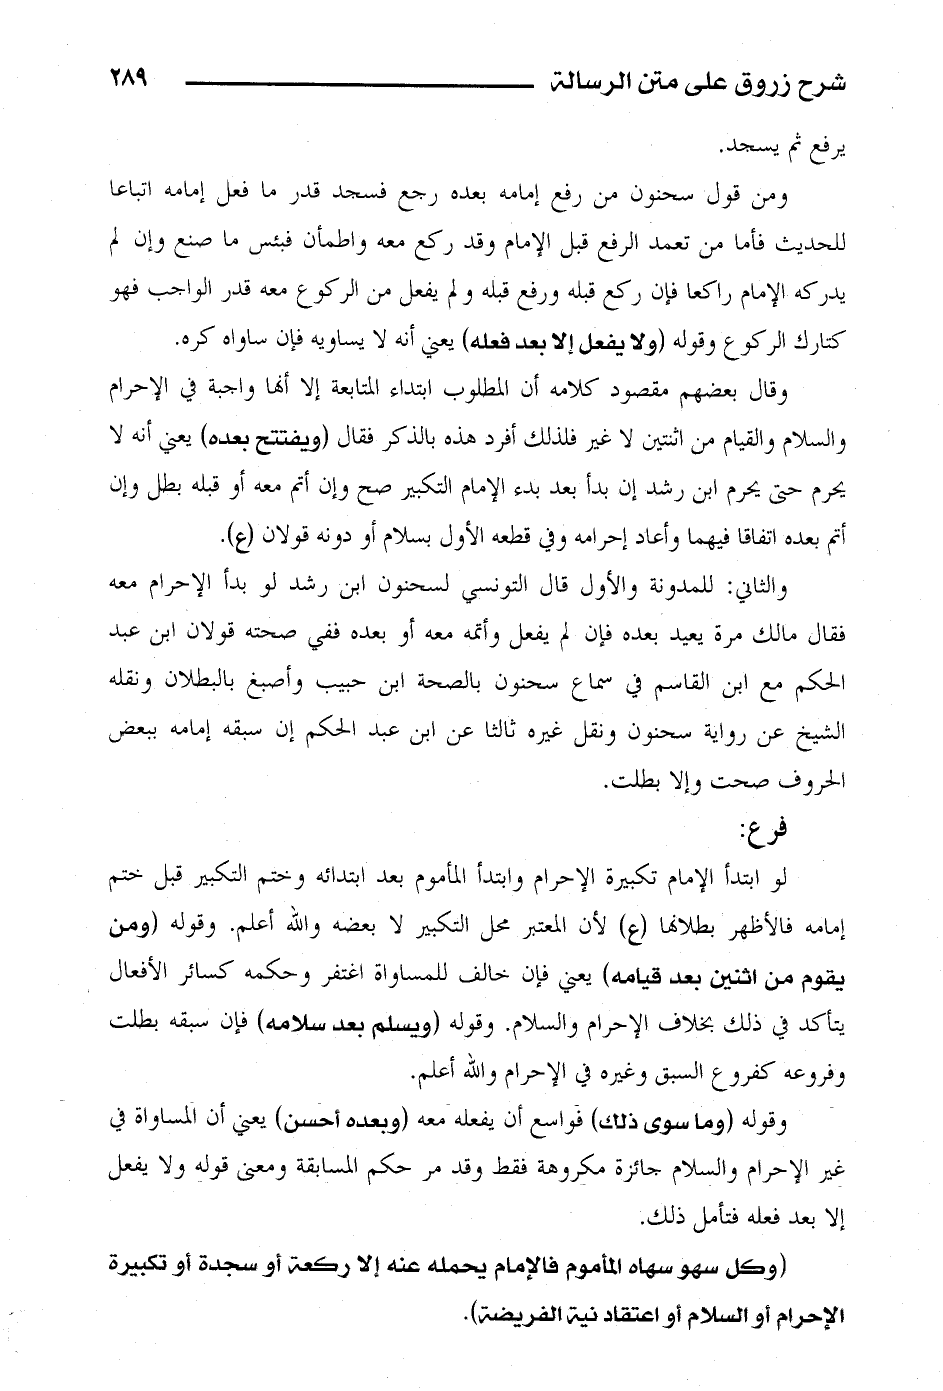 شرح زروق على متن الرسالة ٢٨٩
يرفع ثم يسجد.
ومن قول سحنون من رفع إمامه بعده رجع فسجد قدر ما فعل إمامه اتباعا
للحديث فأما من تعمد الرفع قبل الإمام وقد ركع معه واطمأن فبئس ما صنع وإن لم
يدركه الإمام راكعا فإن ركع قبله ورفع قبله ولم يفعل من الركوع معه قدر الواجب فهو
كتارك الركوع وقوله (ولا يفعل إلا بعد فعله) يعني أنه لا يساويه فإن ساواه كره.
وقال بعضهم مقصود كلامه أن المطلوب ابتداء المتابعة إلا أنها واجبة في الإحرام
والسلام والقيام من اثنتين لا غير فلذلك أفرد هذه بالذكر فقال (ويفتتح بعده) يعني أنه لا
يحرم حتى يحرم ابن رشد إن بدأ بعد بدء الإمام التكبير صح وإن أتم معه أو قبله بطل وإن
أتم بعده اتفاقا فيهما وأعاد إحرامه وفي قطعه الأول بسلام أو دونه قولان (ع).
والثاني: للمدونة والأول قال التونسي لسحنون ابن رشد لو بدأ الإحرام معه
فقال مالك مرة يعيد بعده فإن لم يفعل وأتمه معه أو بعده ففي صحته قولان ابن عبد
الحكم مع ابن القاسم في سماع سحنون بالصحة ابن حبيب وأصبغ بالبطلان ونقله
الشيخ عن رواية سحنون ونقل غيره ثالثا عن ابن عبد الحكم إن سبقه إمامه ببعض
الحروف صحت وإلا بطلت.
فرع:
لو ابتدأ الإمام تكبيرة الإحرام وابتدأ المأموم بعد ابتدائه وختم التكبير قبل ختم
إمامه فالأظهر بطلانها (ع) لأن المعتبر محل التكبير لا بعضه والله أعلم. وقوله (ومن
يقوم من اثنين بعد قيامه) يعني فإن خالف للمساواة اغتفر وحكمه كسائر الأفعال
يتأكد في ذلك بخلاف الإحرام والسلام. وقوله (ويسلم بعد سلامه) فإن سبقه بطلت
وفروعه كفروع السبق وغيره في الإحرام والله أعلم.
وقوله (وما سوى ذلك) فواسع أن يفعله معه (وبعده أحسن) يعني أن المساواة في
غير الإحرام والسلام جائزة مكروهة فقط وقد مر حكم المسابقة ومعنى قوله ولا يفعل
إلا بعد فعله فتأمل ذلك.
(وكل سهو سهاه المأموم فالإمام يحمله عنه إلا ركعة أو سجدة أو تكبيرة
الإحرام أو السلام أو اعتقاد نية الفريضة).